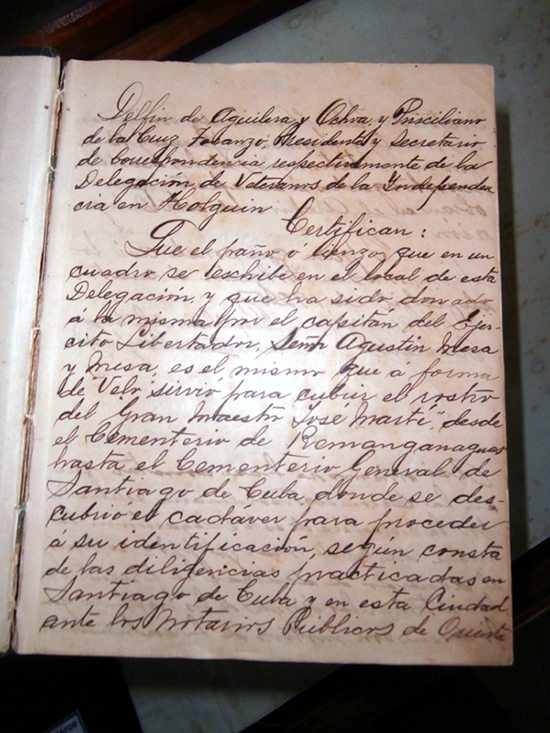 Delfin de Aguilera y Ochoa y Prisciliano
de la Cruz Presidente y Secretario
de correspondencia respectivamente de la
Delegación de Veteranos de la Independen
cia en Holguin Certifican:
Que el paño ó lienzo, que en un
cuadro, se exhibe en el local de esta
Delegación, y que ha sido donado
á la misma por el capitán del Ejér-
cito Libertador, Señor Agustin Mesa
y Mesa, es el mismo que á forma
de Velo sirvió para cubrir el rostro
del Gran Maestro "José Martí", desde
el Cementerio de Remanganaguas
hasta el Cementerio General de
Santiago de Cuba, donde se des-
cubrio el cadáver para proceder
á su identificación, según consta
de las diligencias practicadas en
Santiago de Cuba y en esta Ciudad,
ante los Notarios Públicos de Oriente